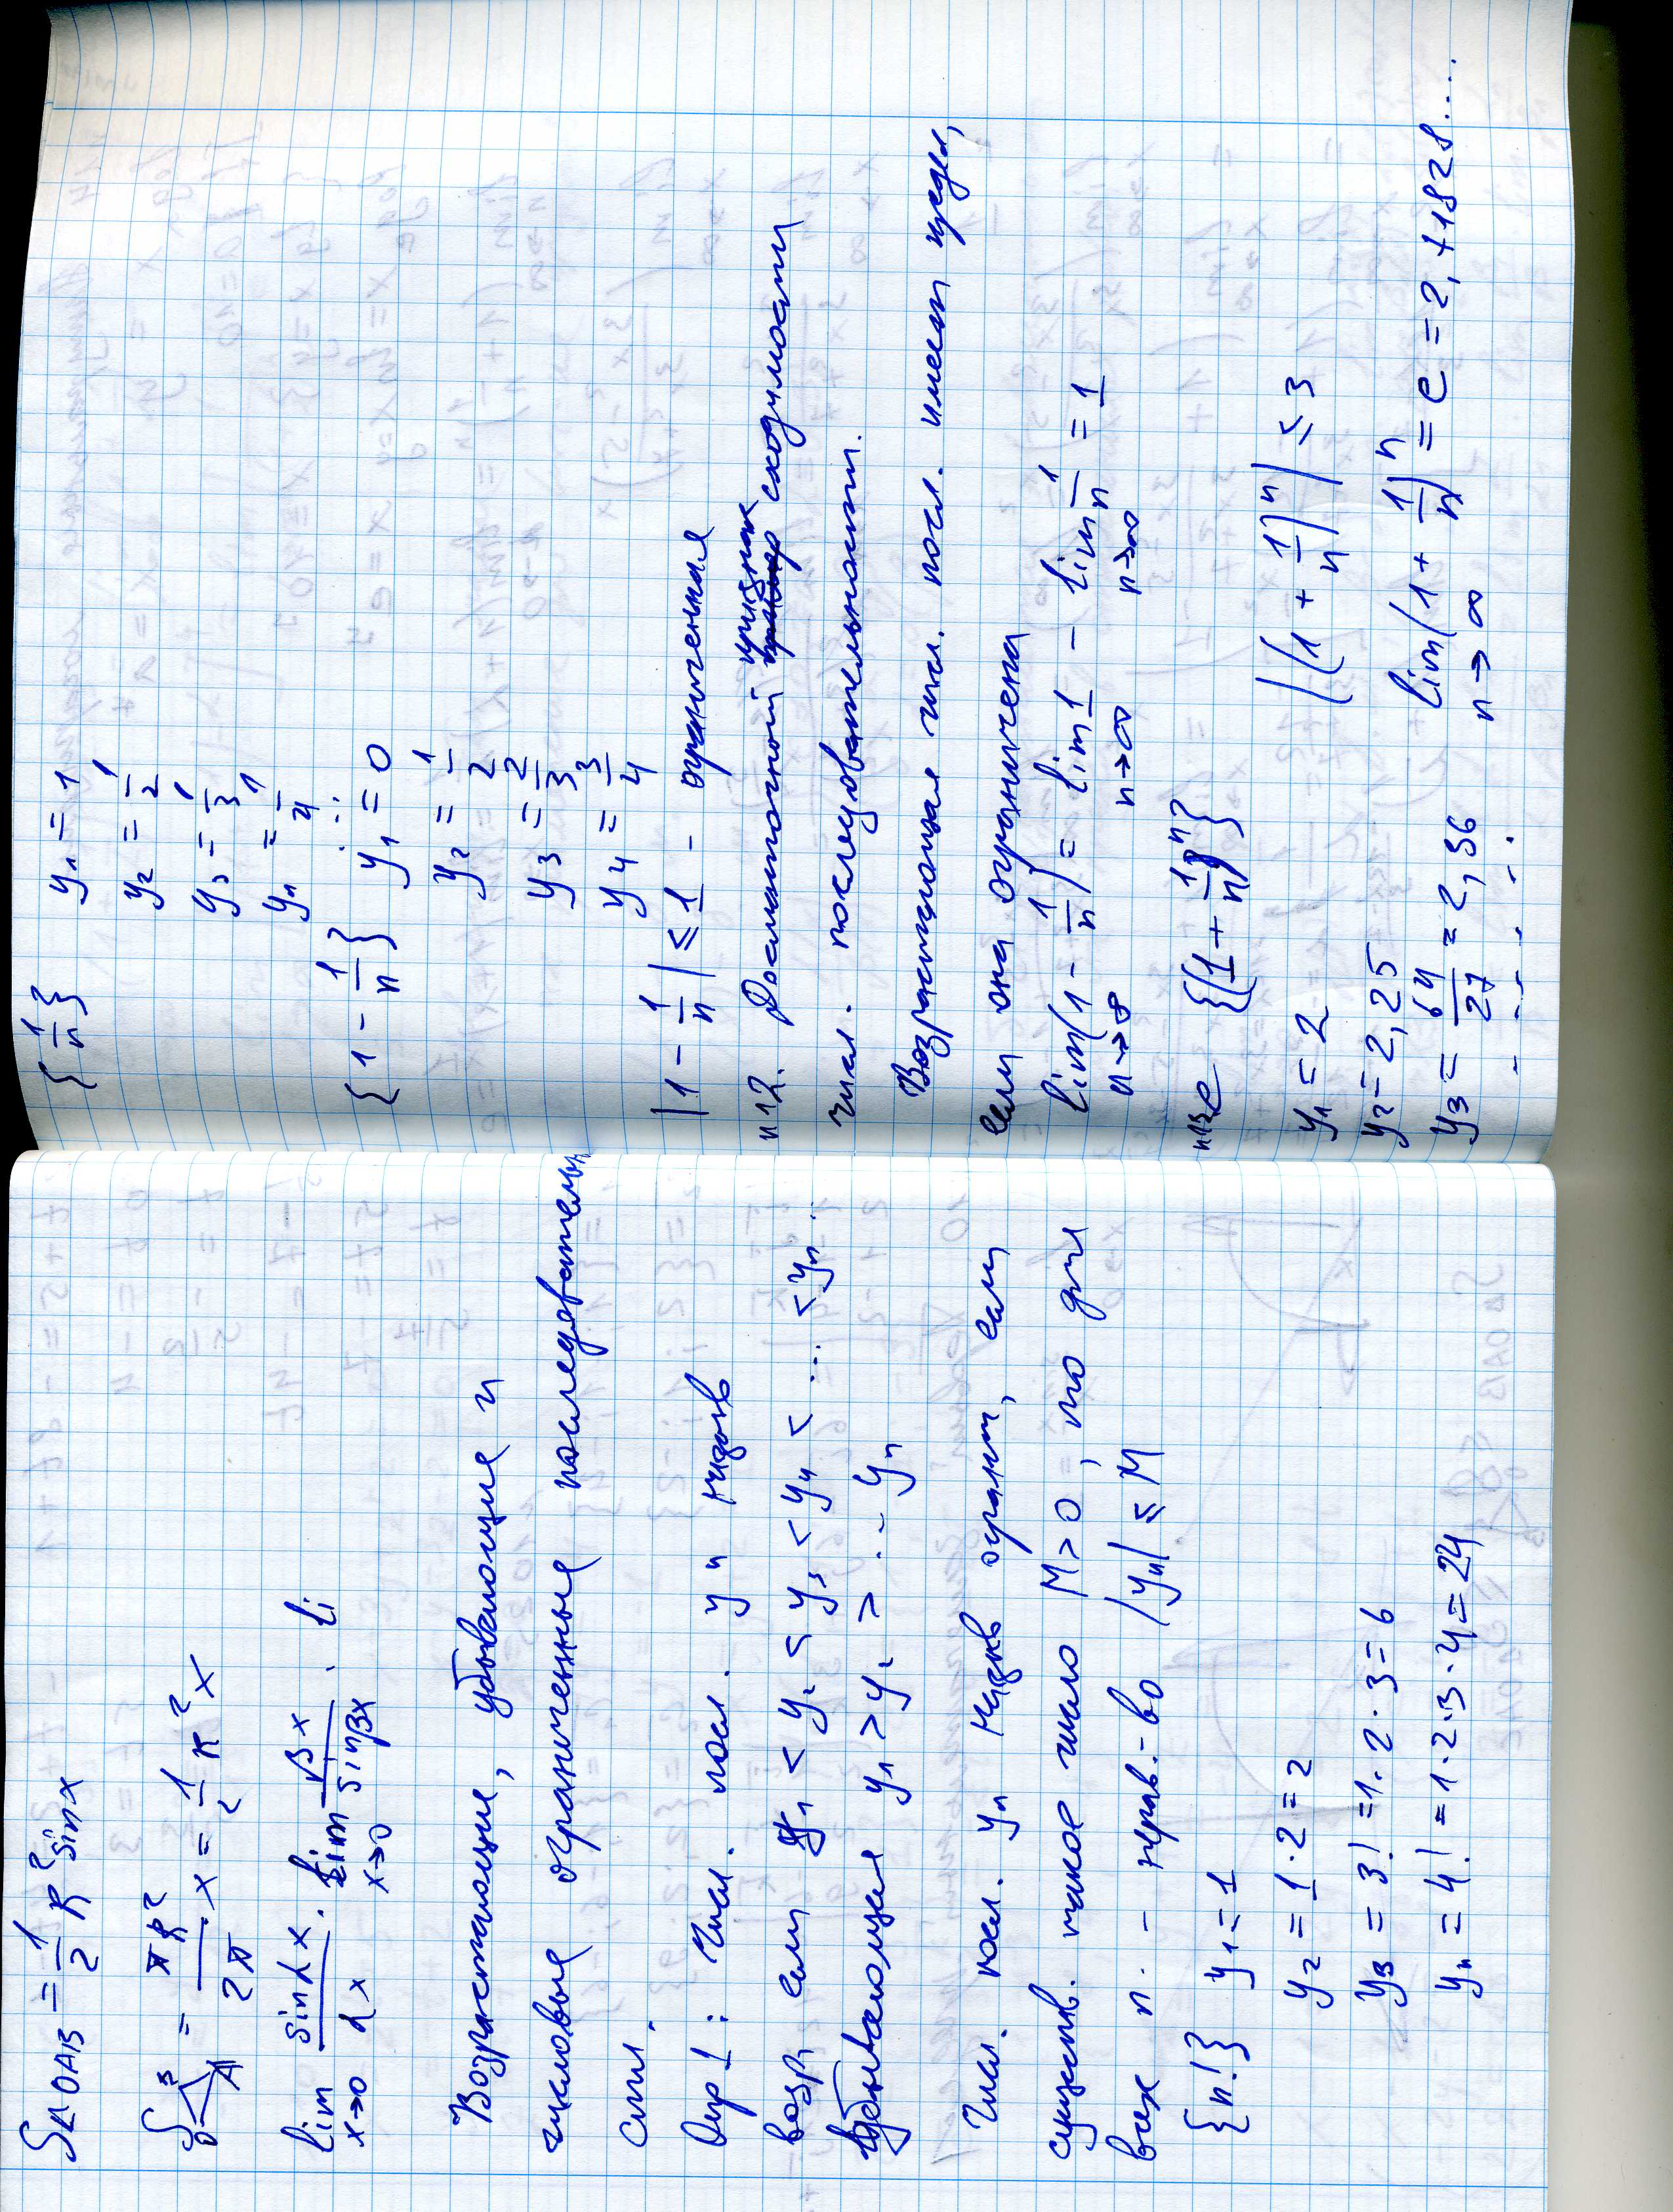 S△OAB = 1/2 R² sin x
S = πR²/2π · x = 1/2 R² x
lim x→0 sin αx / αx · lim x→0 βx / sin βx · li
Возрастающие, убывающие и
числовые ограниченные последователь
сти.
Опр 1: Числ. посл. yn назыв
возр, если y₁ < y₂ < y₃ < y₄ < ... < yn ...
Убывающая y₁ > y₂ > ... yn
Числ. посл. yn назыв огранич, если
существ. такое число M > 0, что для
всех n - нерав.-во |yn| ≤ M
{n!} y₁ = 1
y₂ = 1·2 = 2
y₃ = 3! = 1·2·3 = 6
y₄ = 4! = 1·2·3·4 = 24
{1/n} y₁ = 1
y₂ = 1/2
y₃ = 1/3
y₄ = 1/4
{1 - 1/n} y₁ = 0
y₂ = 1/2
y₃ = 2/3
y₄ = 3/4
|1 - 1/n| ≤ 1 - ограниченная
п12. Достаточный признак сходимости
числ. последовательности.
Возрастающая числ. посл. имеет предел,
если она ограничена
lim n→∞ (1 - 1/n) = lim n→∞ 1 - lim n→∞ 1/n = 1
п13 e {(1 + 1/n)ⁿ}
y₁ = 2 |(1 + 1/n)ⁿ| ≤ 3
y₂ = 2,25
y₃ = 64/27 = 2,36 lim n→∞ (1 + 1/n)ⁿ = e = 2,71828....